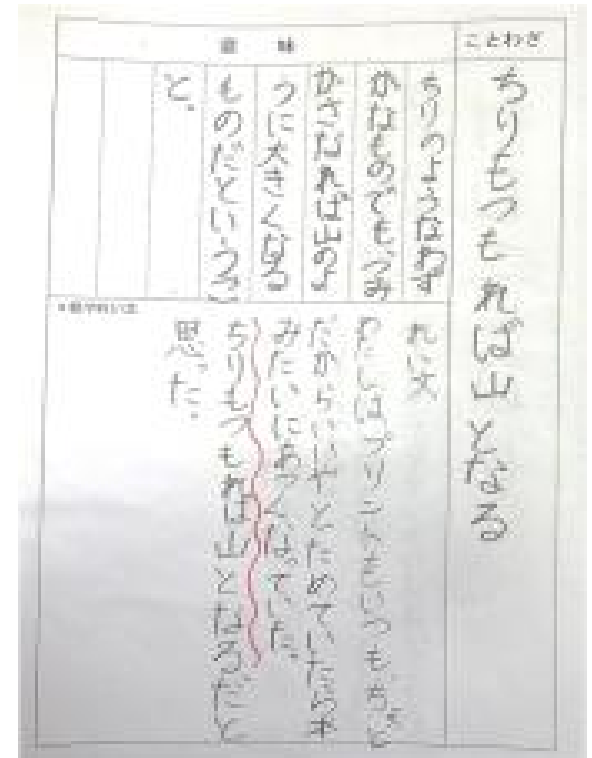 ことわざ
ちりもつもれば山となる
意味
ちりのようなわず
かなものでも、つみ
かさなれば山のよ
うに大きくなる
ものだというこ
と。
れい文
わたしはプリントをいつもあと
だからいいやとためていたら本
みたいにあつくなっていた。
ちりもつもれば山となるだと
思った。